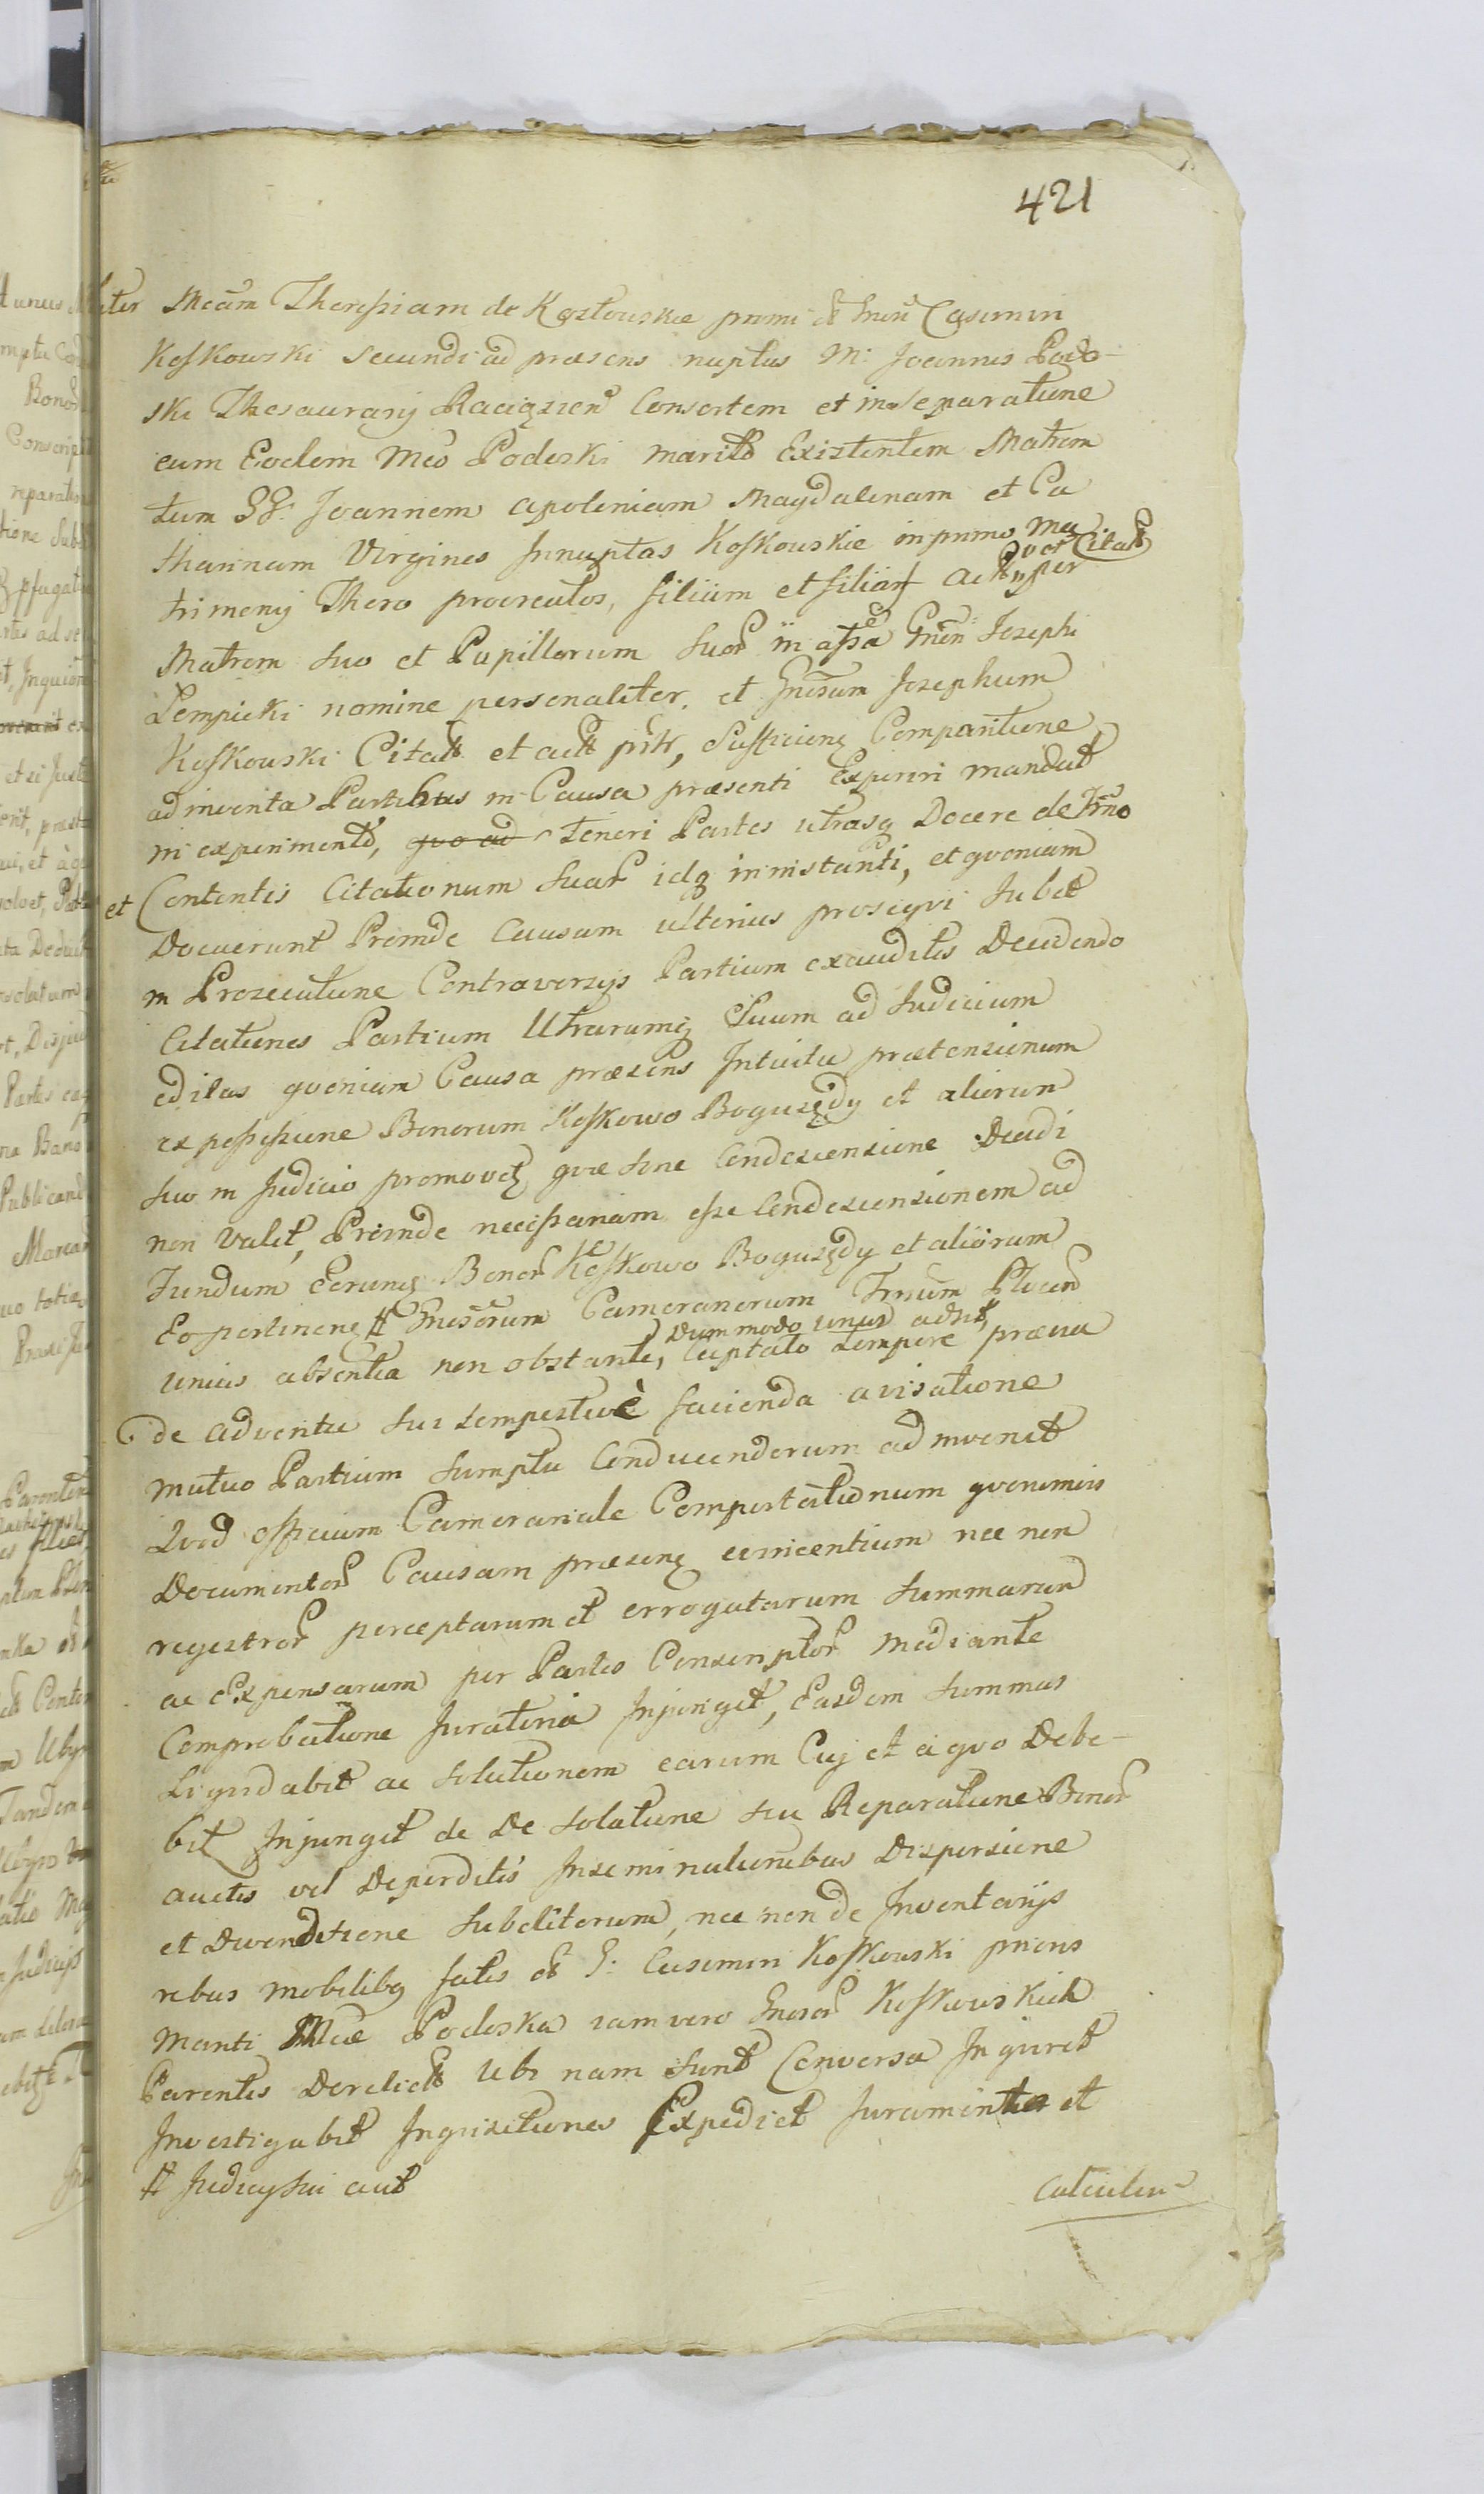 421
Mcam Theressiam de Kozłowskie primi olim Gnrsi Casimiri
Koskowski secundi ad præsens nuptus M: Joannis Podo-
ski Thesaurarij Raciązien Consortem et in separatione
cum Eodem Mco Podoski marito Existentem Matrem
tum GG. Joannem Apoloniam Magdalenam et Ca
tharinam Virgines Innuptas Koskowskie in primo Ma
trimonij Thoro procreatos, filium et filias Act per
quot Citatt
Matrem suo et Pupillorum suor in assa Gnrsi Josephi
Lempicki nomine personaliter, et Gnrosum Josephum
Koskowski Citatt et actt prtt, Sufficienq Comparitione
adinventa Partibus in Causa præsenti Experiri mandat
in experimento, quo ad teneri Partes utrasq Docere de Trno
et Contentis Citationum suar idq in instanti, et quoniam
Docuerunt Proinde Causam ulterius prosequi Jubet
in Prosecutione Controversijs Partium exauditis Decidendo
Citationes Partium Utrarumq Suum ad Judicium
editas quoniam Causa præsens Intuitu prætensionum
ex possessione Bonorum Koskowo Boguszędy et aliorum
suo in Judicio promovetq quæ sine Condescensione Decidi
non Valet, Proinde necessariam esse Condescensionem ad
Fundum Eorumq Bonor Koskowo Boguszędy et aliorum
Eo pertinenq tt Gnrosorum Camerariorum Trrum Plocen
unius absentia non obstante, Captato tempore prævia
dummodo unus adsit,
de adventu sui tempestivè facienda avisatione
mutuo Partium sumptu Conducendorum ad invenit
Quod officium Camerariale Comportationum quorumvis
Documentor Causam præsenq concernentium nec non
regestror perceptarum et errogatarum summarum
ac Expensarum per Partes Conscriptor mediante
Comprobatione Juratoria Injunget, Easdem summas
Liquidabit ac solutionem earum Cuj et a quo Debe-
bit Injunget de Desolatione seu Reparatione Bonor
auctis vel Deperditis Inseminationibus Dispersione
et Divenditione Subditorum, nec non de Inventarijs
rebus mobilibq fatis olim G: Casimiri Koskowski prioris
Mariti Mcae Podoska iam vero Gnrosor Koskowskich
Parentis Derelictt Ubi nam sunt Conversa Inquiret
Investigabit Inquisitiones Expediet Juramenta et
tt Judicij sui aut
Calculum